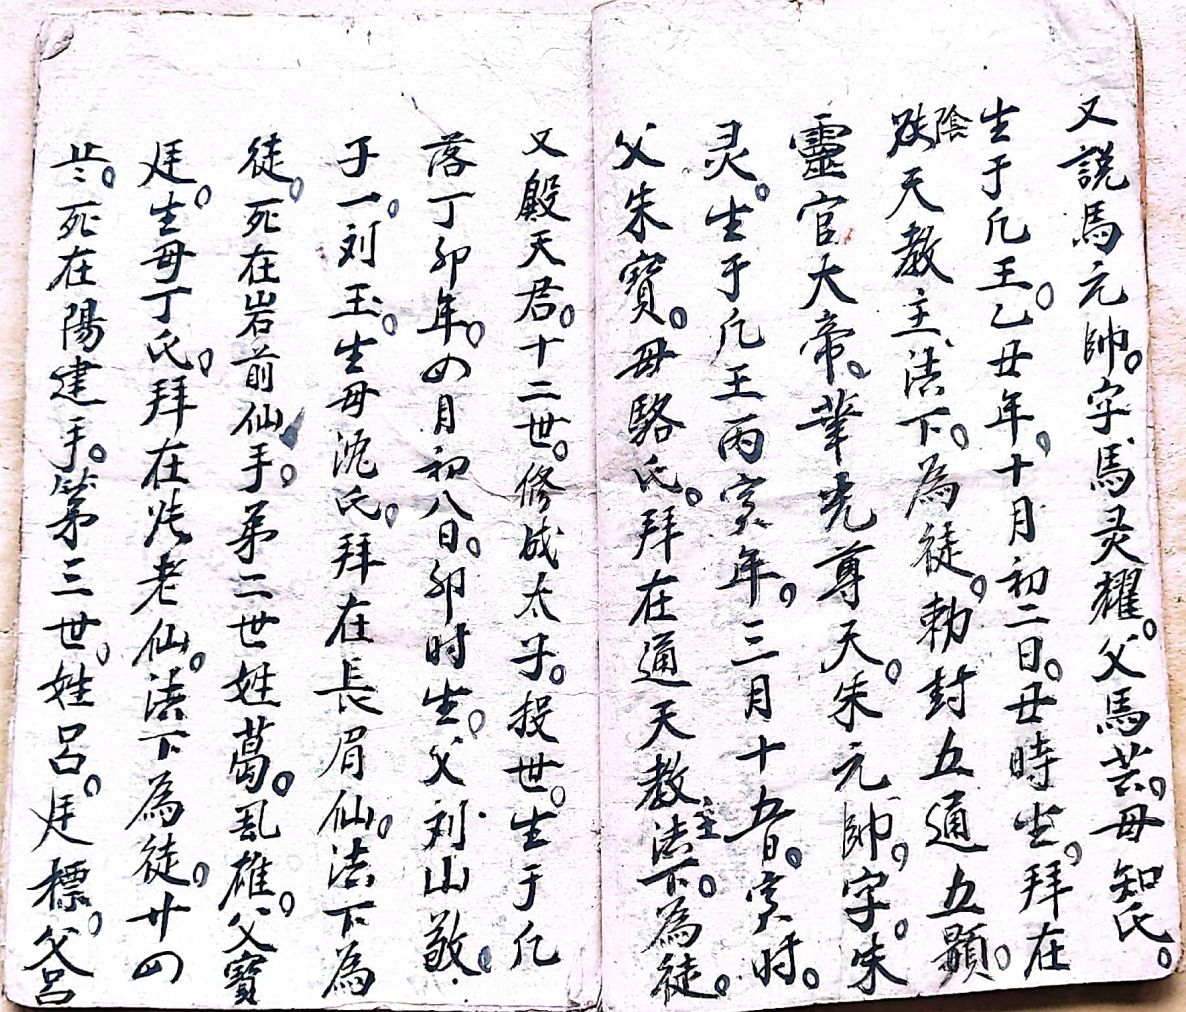 又說馬元帥。字馬灵耀。父馬芸。母知氏。
生于凡王。乙丑年。十月初二日。丑時生。拜在
陰天教主法下。為徒。勅封五通五顯。
靈官大帝。華光尊天。朱元帥。字。朱
灵。生于凡王丙寅年。三月十五日。寅时。
父朱寶。母駱氏。拜在通天教主法下。為徒。
又殿天君。十二世。修成太子。投世。生于凡
落丁卯年。四月初八日。卯时生。父刘山敬。
子一。刘玉。生母沈氏。拜在長眉仙。法下為
徒。死在岩前仙手。弟二世姓葛。乱雄。父寶
廷。生母丁氏。拜在老仙。法下為徒。廿四
死在陽建手。第三世。姓呂。廷標。父呂